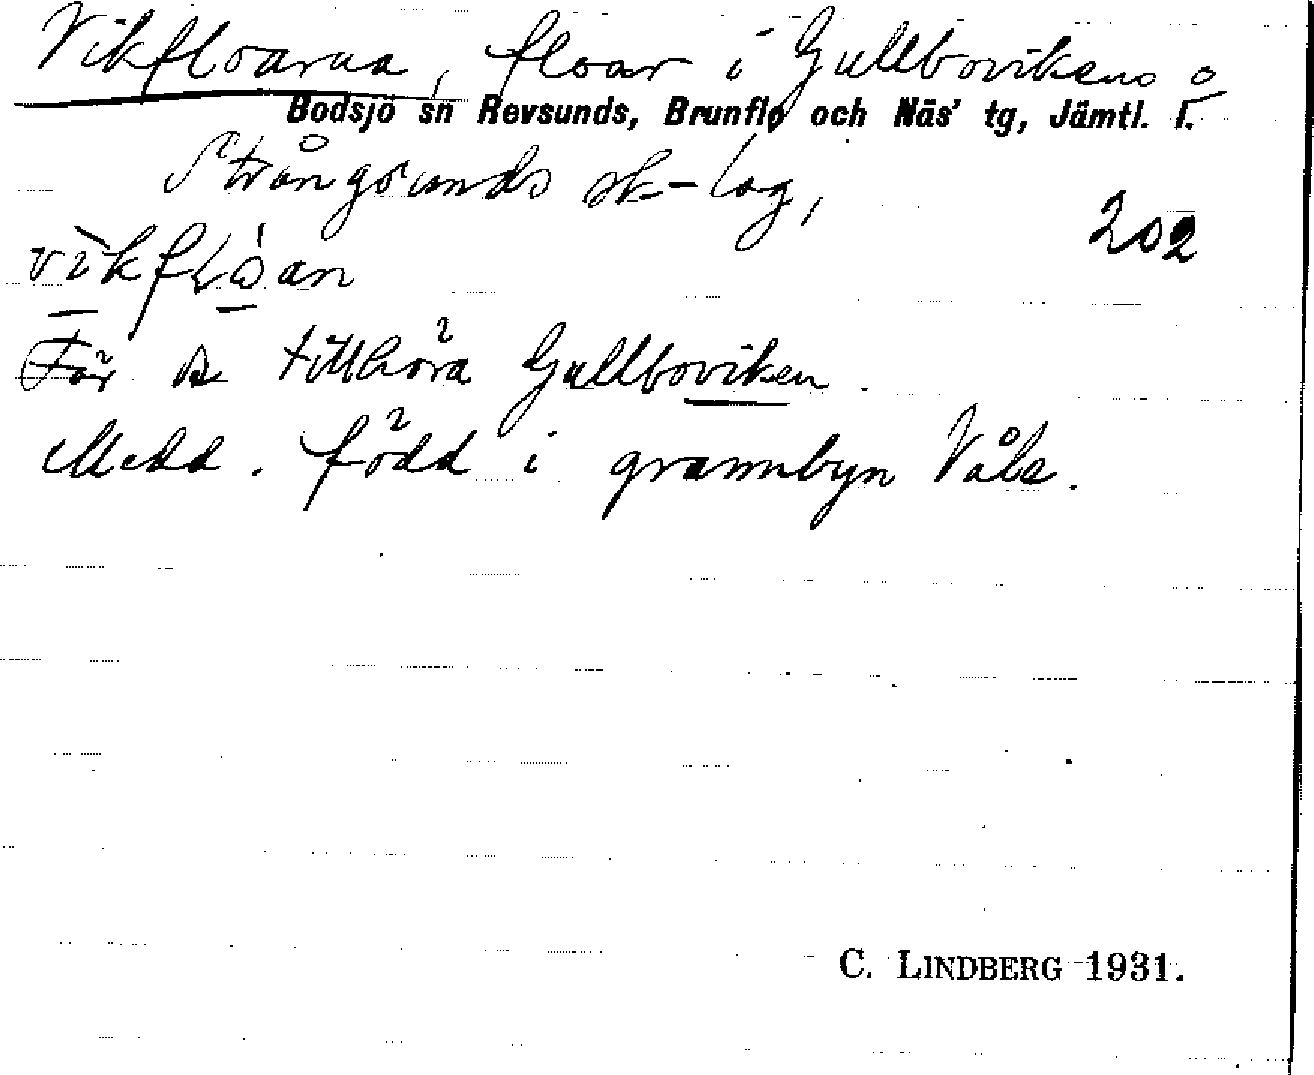 Vikfloarna, floar i Gullbovikens o
Bodsjö sn Revsunds, Brunflo och Näs' tg, Jämtl. l.
Strångsunds sk-lag,
202
vikflòan
För de tillhöra Gullboviken.
Medd. född i grannbyn Våle.
C. LINDBERG 1931.